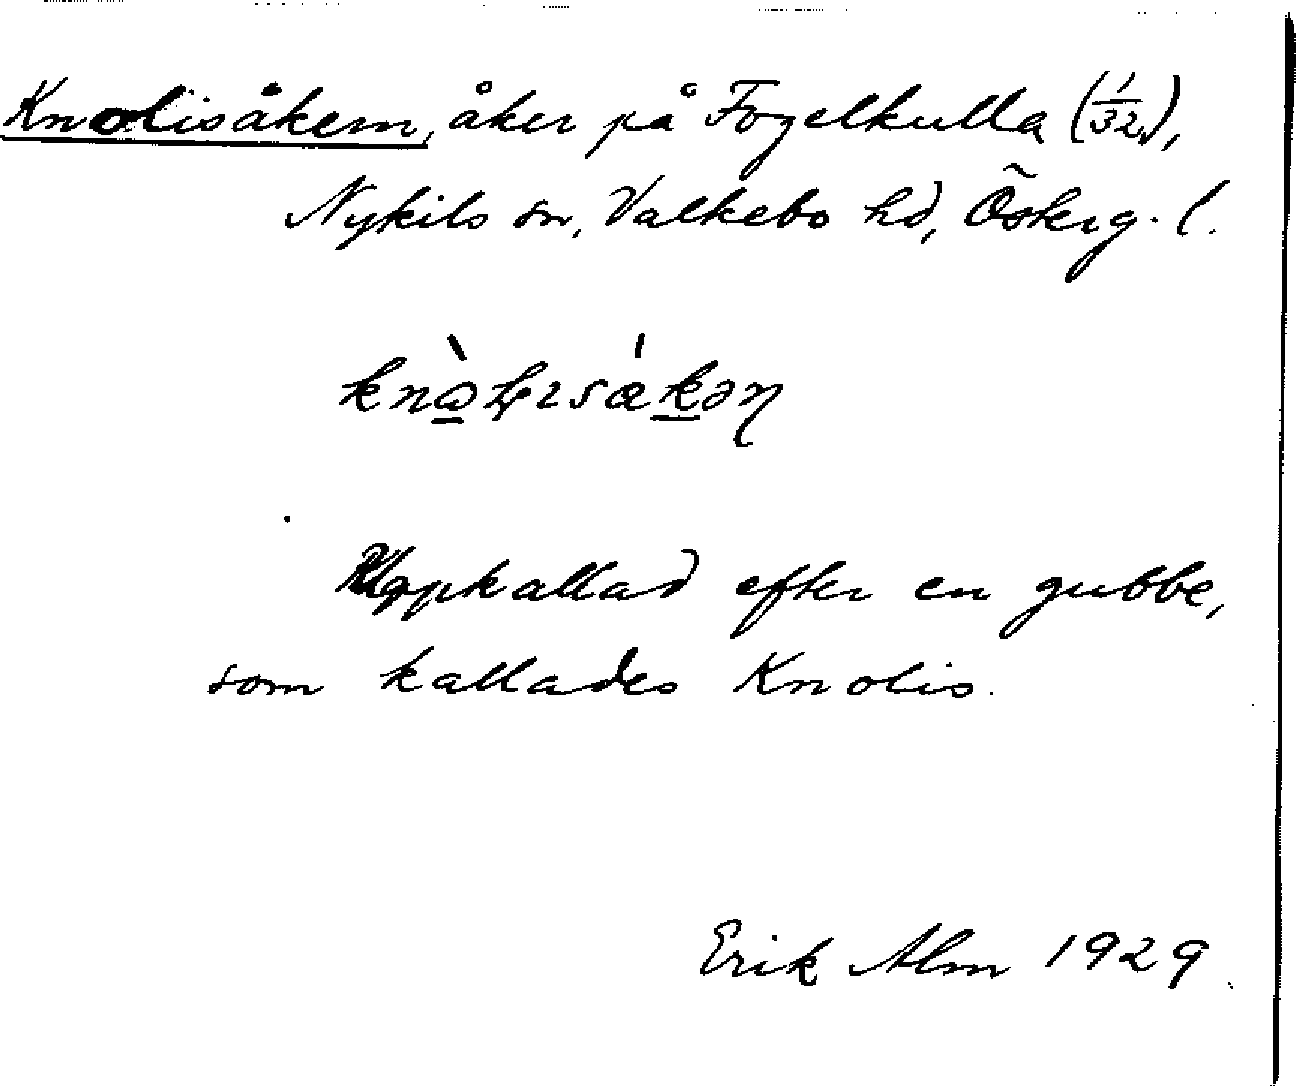 Knolisåkern, åker på Fogelkulla (1/32),
Nykils sn, Valkebo hd, Östergl.
Uppkallad efter en gubbe,
som kallades Knolis.
Erik Alm 1929.